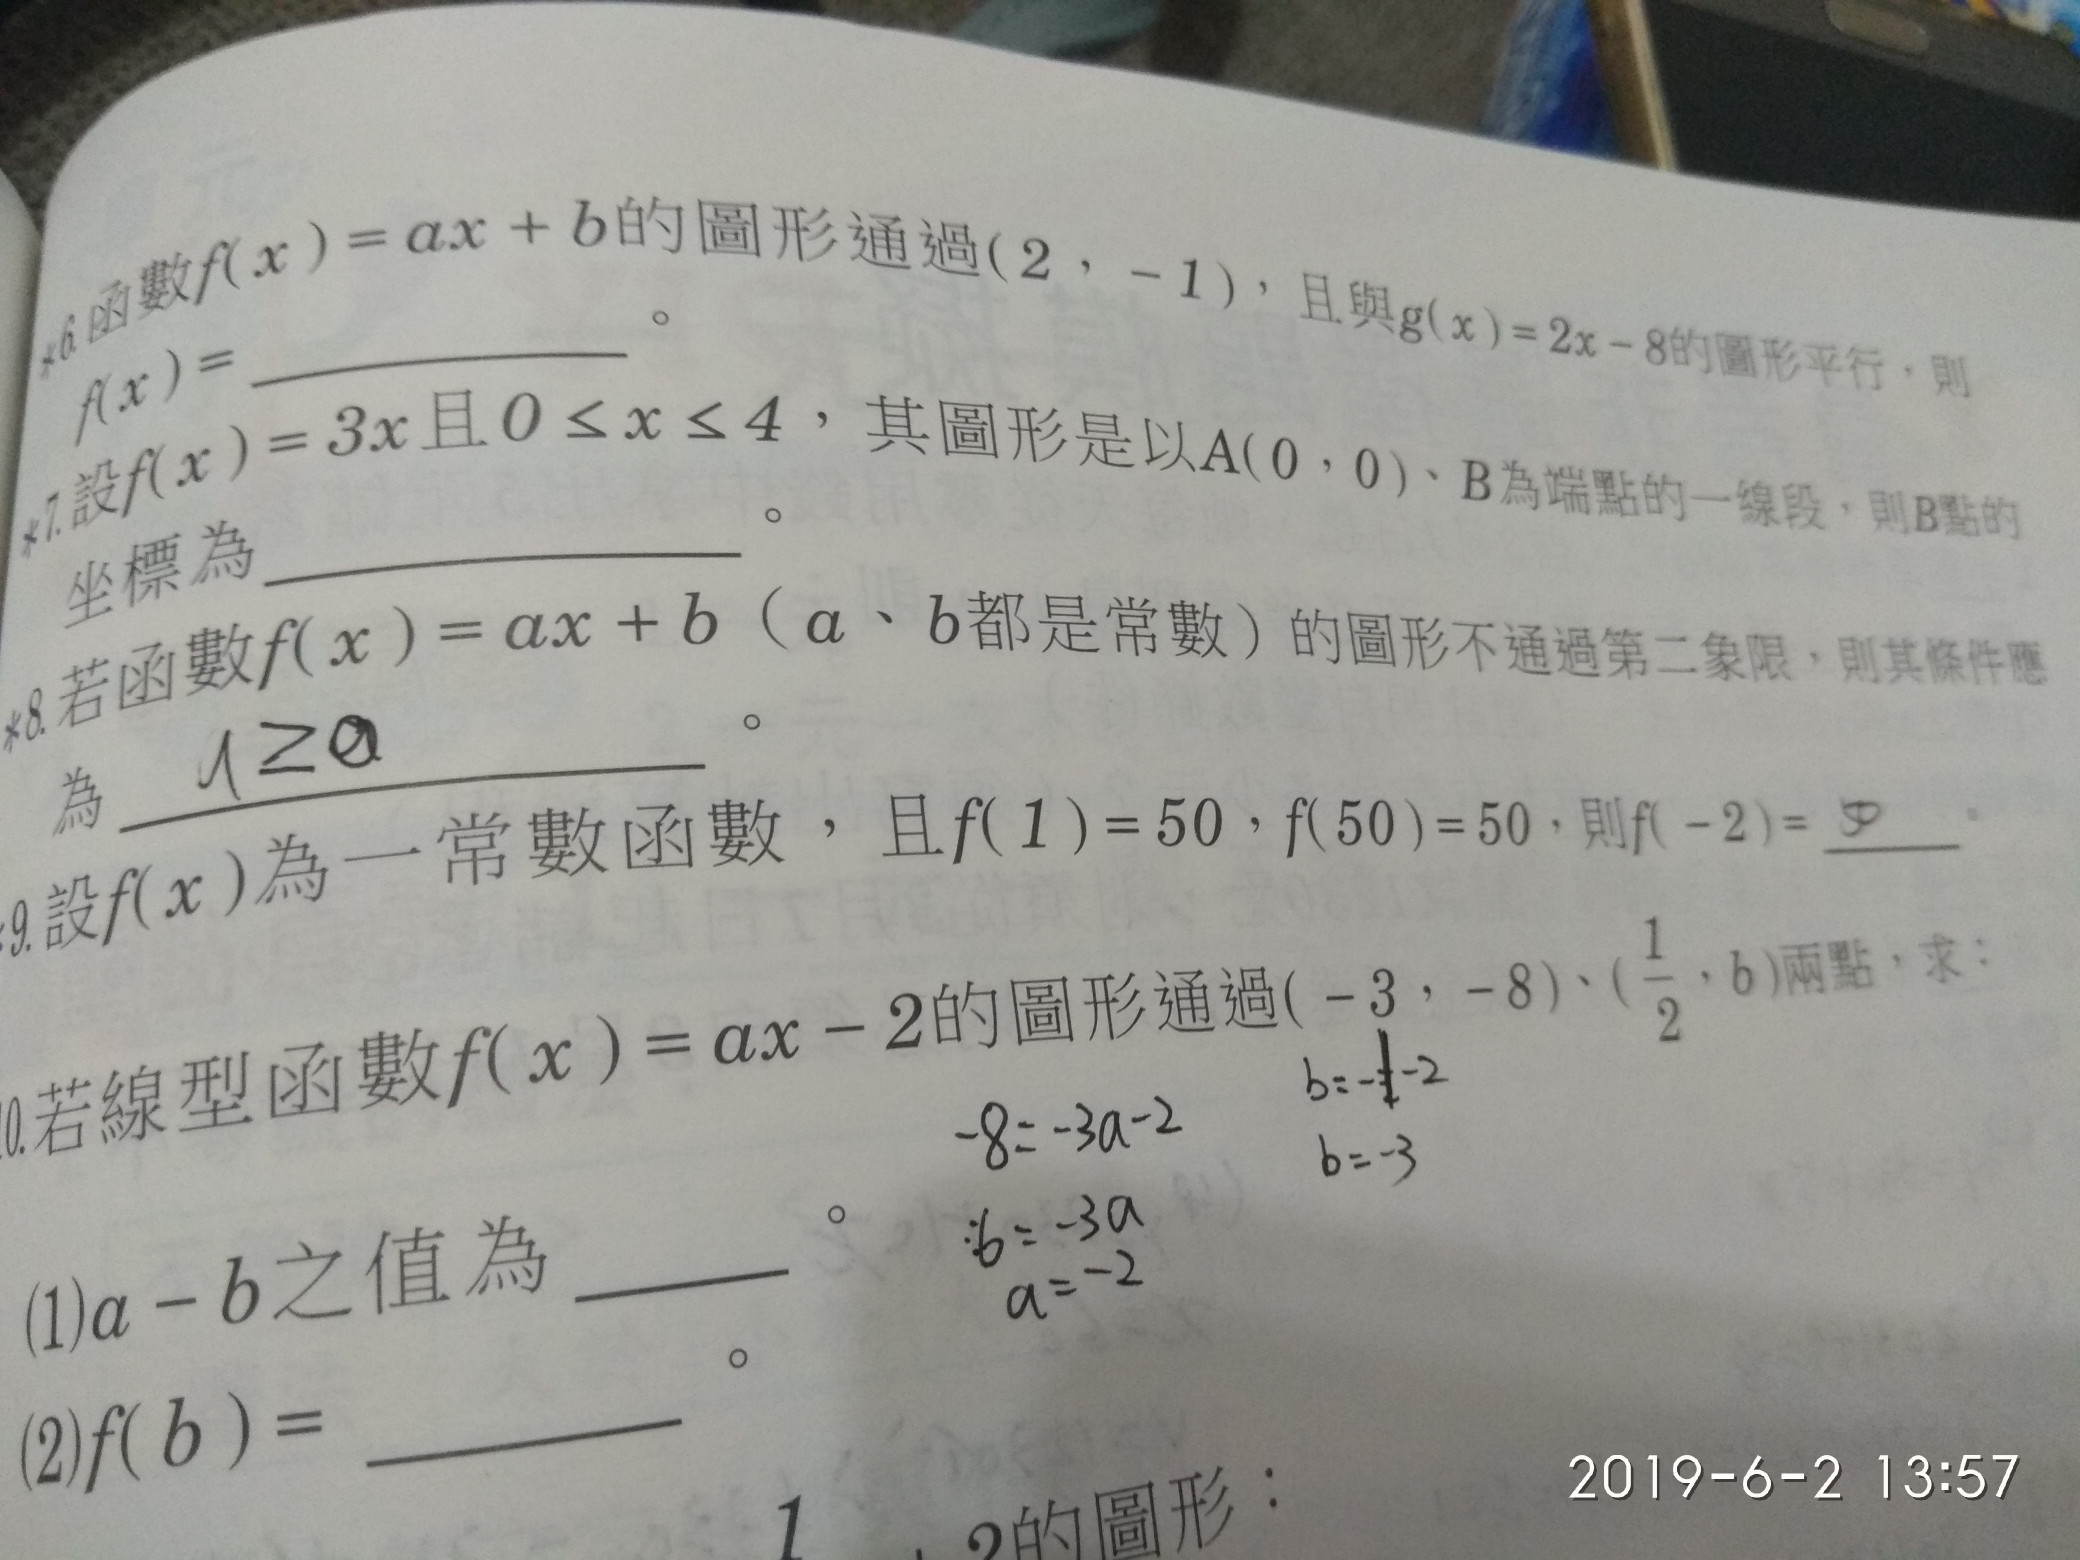 *6.函數f(x)=ax+b的圖形通過(2,-1),且與g(x)=2x-8的圖形平行,則
f(x)=________。
*7.設f(x)=3x且0≤x≤4,其圖形是以A(0,0)、B為端點的一線段,則B點的
坐標為________。
*8.若函數f(x)=ax+b(a、b都是常數)的圖形不通過第二象限,則其條件應
為 ≥ 。
*9.設f(x)為一常數函數,且f(1)=50,f(50)=50,則f(-2)=____。
10.若線型函數f(x)=ax-2的圖形通過(-3,-8)、(1/2,b)兩點,求:
-8=-3a-2
b=-1-2
b=-3
-6=-3a
a=-2
(1)a-b之值為____。
(2)f(b)=____。
1
+2的圖形:
2019-6-2 13:57